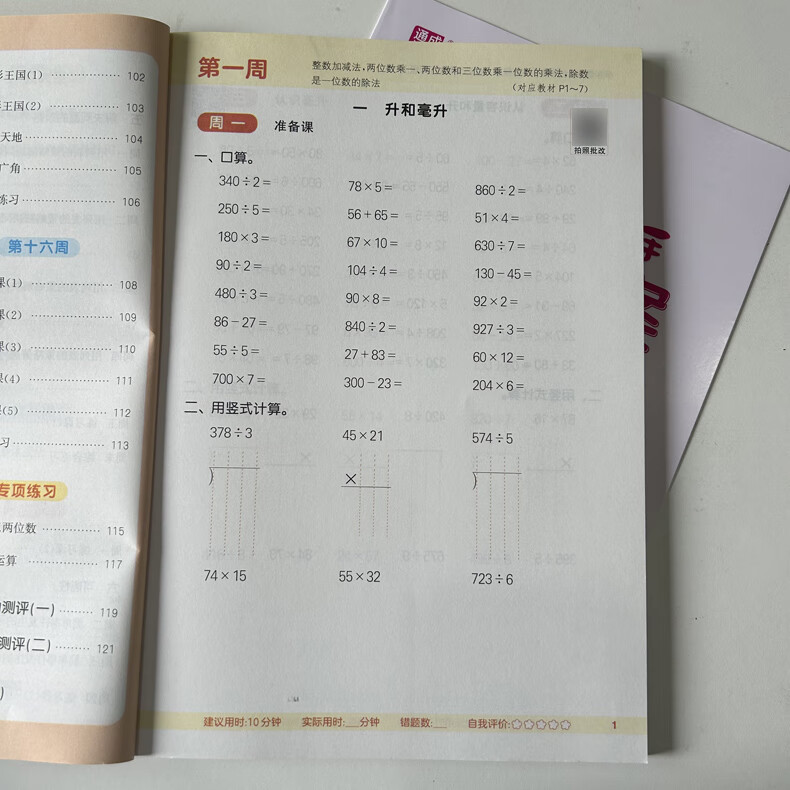 王国(1) 102
王国(2) 103
天地 104
广角 105
练习 106
第十六周
课(1) 108
(2) 109
(3) 110
(4) 111
(5) 112
习 113
专项练习
两位数 115
运算 117
测评(一) 119
测评(二) 121
第一周
整数加减法,两位数乘一、两位数和三位数乘一位数的乘法,除数
是一位数的除法
(对应教材 P1~7)
一 升和毫升
周一 准备课
拍照批改
一、口算。
340÷2= 78×5= 860÷2=
250÷5= 56+65= 51×4=
180×3= 67×10= 630÷7=
90÷2= 104÷4= 130-45=
480÷3= 90×8= 92×2=
86-27= 840÷2= 927÷3=
55÷5= 27+83= 60×12=
700×7= 300-23= 204×6=
二、用竖式计算。
378÷3 45×21 574÷5
×
74×15 55×32 723÷6
建议用时:10分钟 实际用时:__分钟 错题数:__ 自我评价: 1